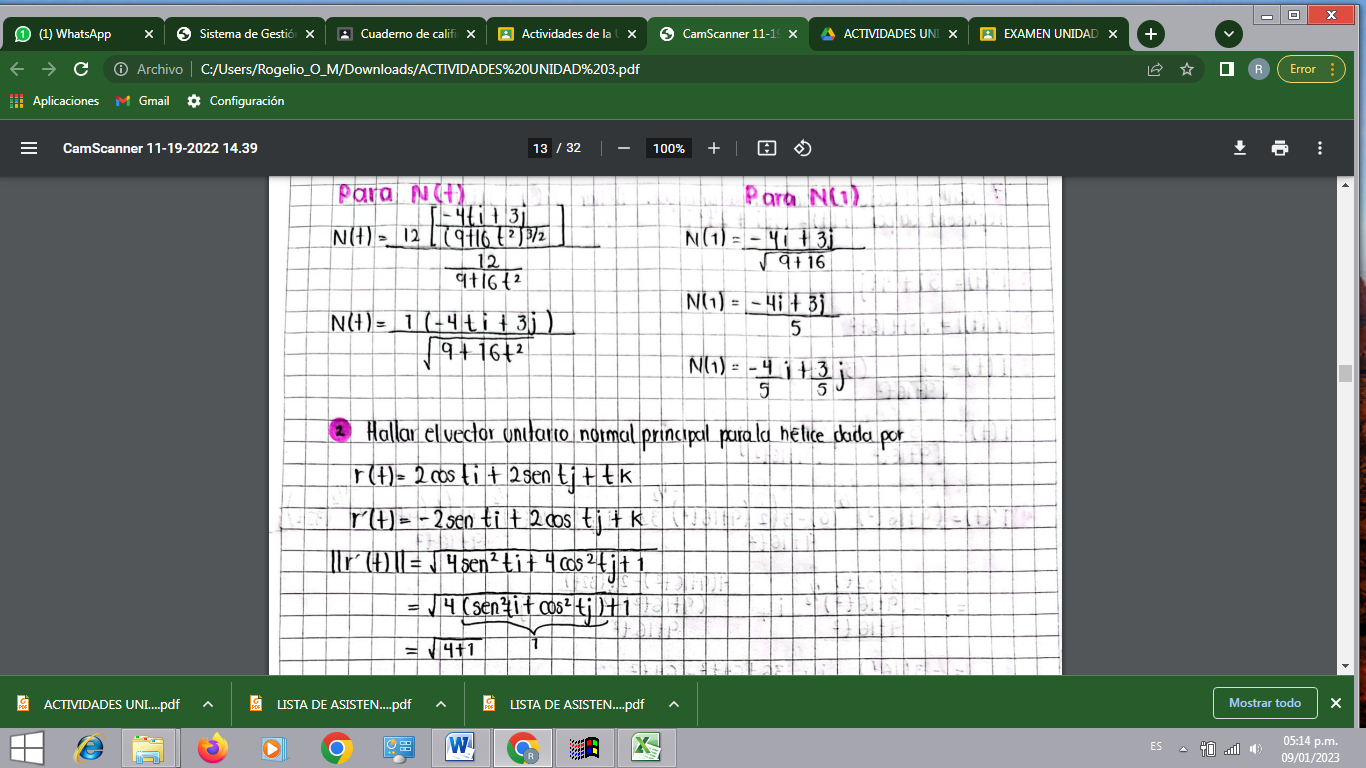 (1) WhatsApp
Sistema de Gestió
Cuaderno de calif
Actividades de la U
CamScanner 11-19
ACTIVIDADES UNI
EXAMEN UNIDAD
Archivo | C:/Users/Rogelio_O_M/Downloads/ACTIVIDADES%20UNIDAD%203.pdf
R
Error
Aplicaciones
Gmail
Configuración
CamScanner 11-19-2022 14.39
13 / 32
100%
Para N(t)
N(t) = 12 [ -4ti + 3j / (9+16t²)^3/2 ] / 12 / 9+16t²
N(t) = 1 (-4ti + 3j) / √9 + 16t²
Para N(1)
N(1) = -4i + 3j / √9+16
N(1) = -4i + 3j / 5
N(1) = -4/5 i + 3/5 j
2 Hallar el vector unitario normal principal para la hélice dada por
r(t) = 2costi + 2sen tj + tk
r'(t) = -2sen ti + 2cos tj + k
||r'(t)|| = √4sen²ti + 4cos²tj + 1
= √4(sen²ti + cos²tj) + 1
1
= √4+1
ACTIVIDADES UNI....pdf
LISTA DE ASISTEN....pdf
LISTA DE ASISTEN....pdf
Mostrar todo
ES
05:14 p.m.
09/01/2023